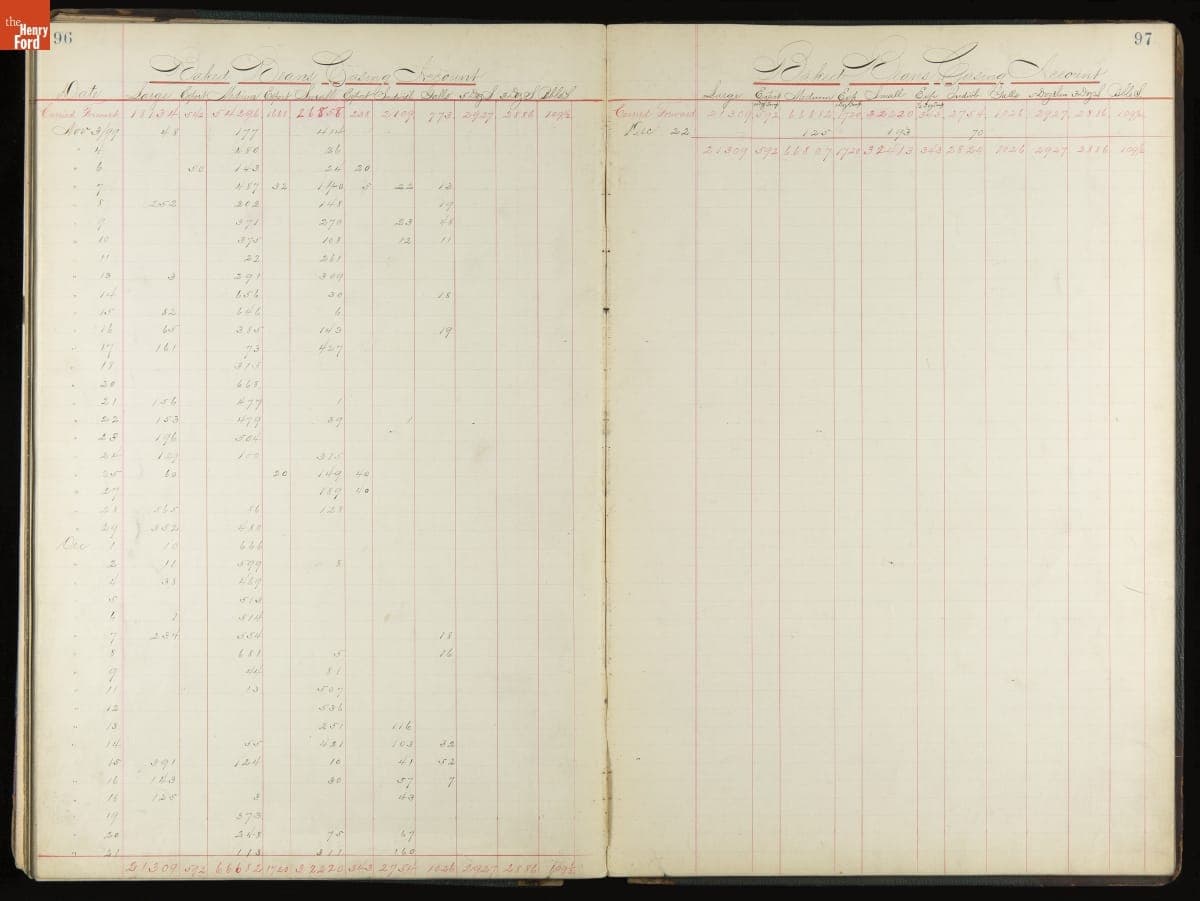 the
Henry
Ford
96
Baked Beans Casing Account
Date Large Export Medium Export Small Export Individ Talls
Carried Forward 18734 542 54296 1688 26858 238 2109 773 2927 2886 109½
Nov 3/99 48 177 414
" 4 480 26
" 6 50 143 24 20
" 7 487 32 1140 5 22 12
" 8 252 202 148 19
" 9 371 270 23 48
" 10 375 103 12 11
" 11 22 261
" 13 3 291 309
" 14 656 30 18
" 15 82 646 6
" 16 65 385 143 19
" 17 161 73 427
" 18 313
" 20 668
" 21 156 477 1
" 22 153 479 39 1
" 23 196 504
" 24 129 100 315
" 25 60 20 149 40
" 27 189 40
" 28 565 56 128
" 29 552 480
Dec 1 10 666
" 2 11 599 8
" 4 38 469
" 5 513
" 6 7 514
" 7 234 554 18
" 8 688 5 16
" 9 44 81
" 11 13 507
" 12 536
" 13 251 116
" 14 55 421 103 32
" 15 391 124 10 41 52
" 16 143 30 57 7
" 18 125 3 43
" 19 373
" 20 243 75 67
" 21 113 311 160
21309 592 66682 1720 32220 343 2754 1026 2927 2886 109½
97
Baked Beans Casing Account
Large Export Medium Exp Small Exp Individ Talls
Carried Forward 21309 592 66682 1720 32220 343 2754 1026 2927 2886 109½
Dec 22 125 193 70
21309 592 66807 1720 32413 343 2824 1026 2927 2886 109½